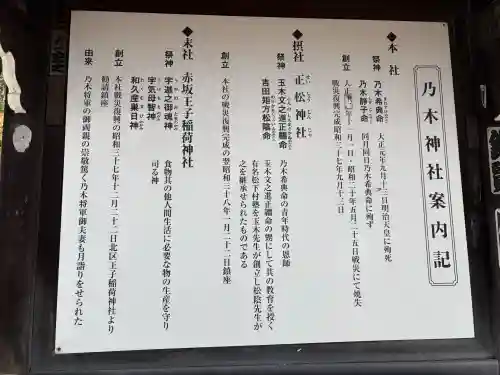 乃木神社案内記
◆本社
祭神 乃木希典命 大正元年九月十三日明治天皇に殉死
乃木静子命 同月同日乃木希典命に殉ず
創立 大正十二年十一月一日・昭和二十年五月二十五日戦災にて焼失
戦災復興完成昭和三十七年九月十三日
◆摂社 正松神社
祭神 玉木文之進正韞命 乃木希典命の青年時代の恩師
吉田矩方松陰命 玉木文之進正韞命の甥にして其の教育を授く
有名松下村塾を玉木先生が創立し松陰先生が
之を継承せられたものである
創立 本社の戦災復興完成の翌昭和三十八年一月二十二日鎮座
◆末社 赤坂王子稲荷神社
祭神 宇迦之御魂神
宇気母智神 食物其の他人間生活に必要な物の生産を守り
和久産巣日神 司る神
創立 本社戦災復興の昭和三十七年十二月二十二日北区王子稲荷神社より
勧請鎮座
由来 乃木将軍の御両親の崇敬篤く乃木将軍御夫妻も月詣りをせられた